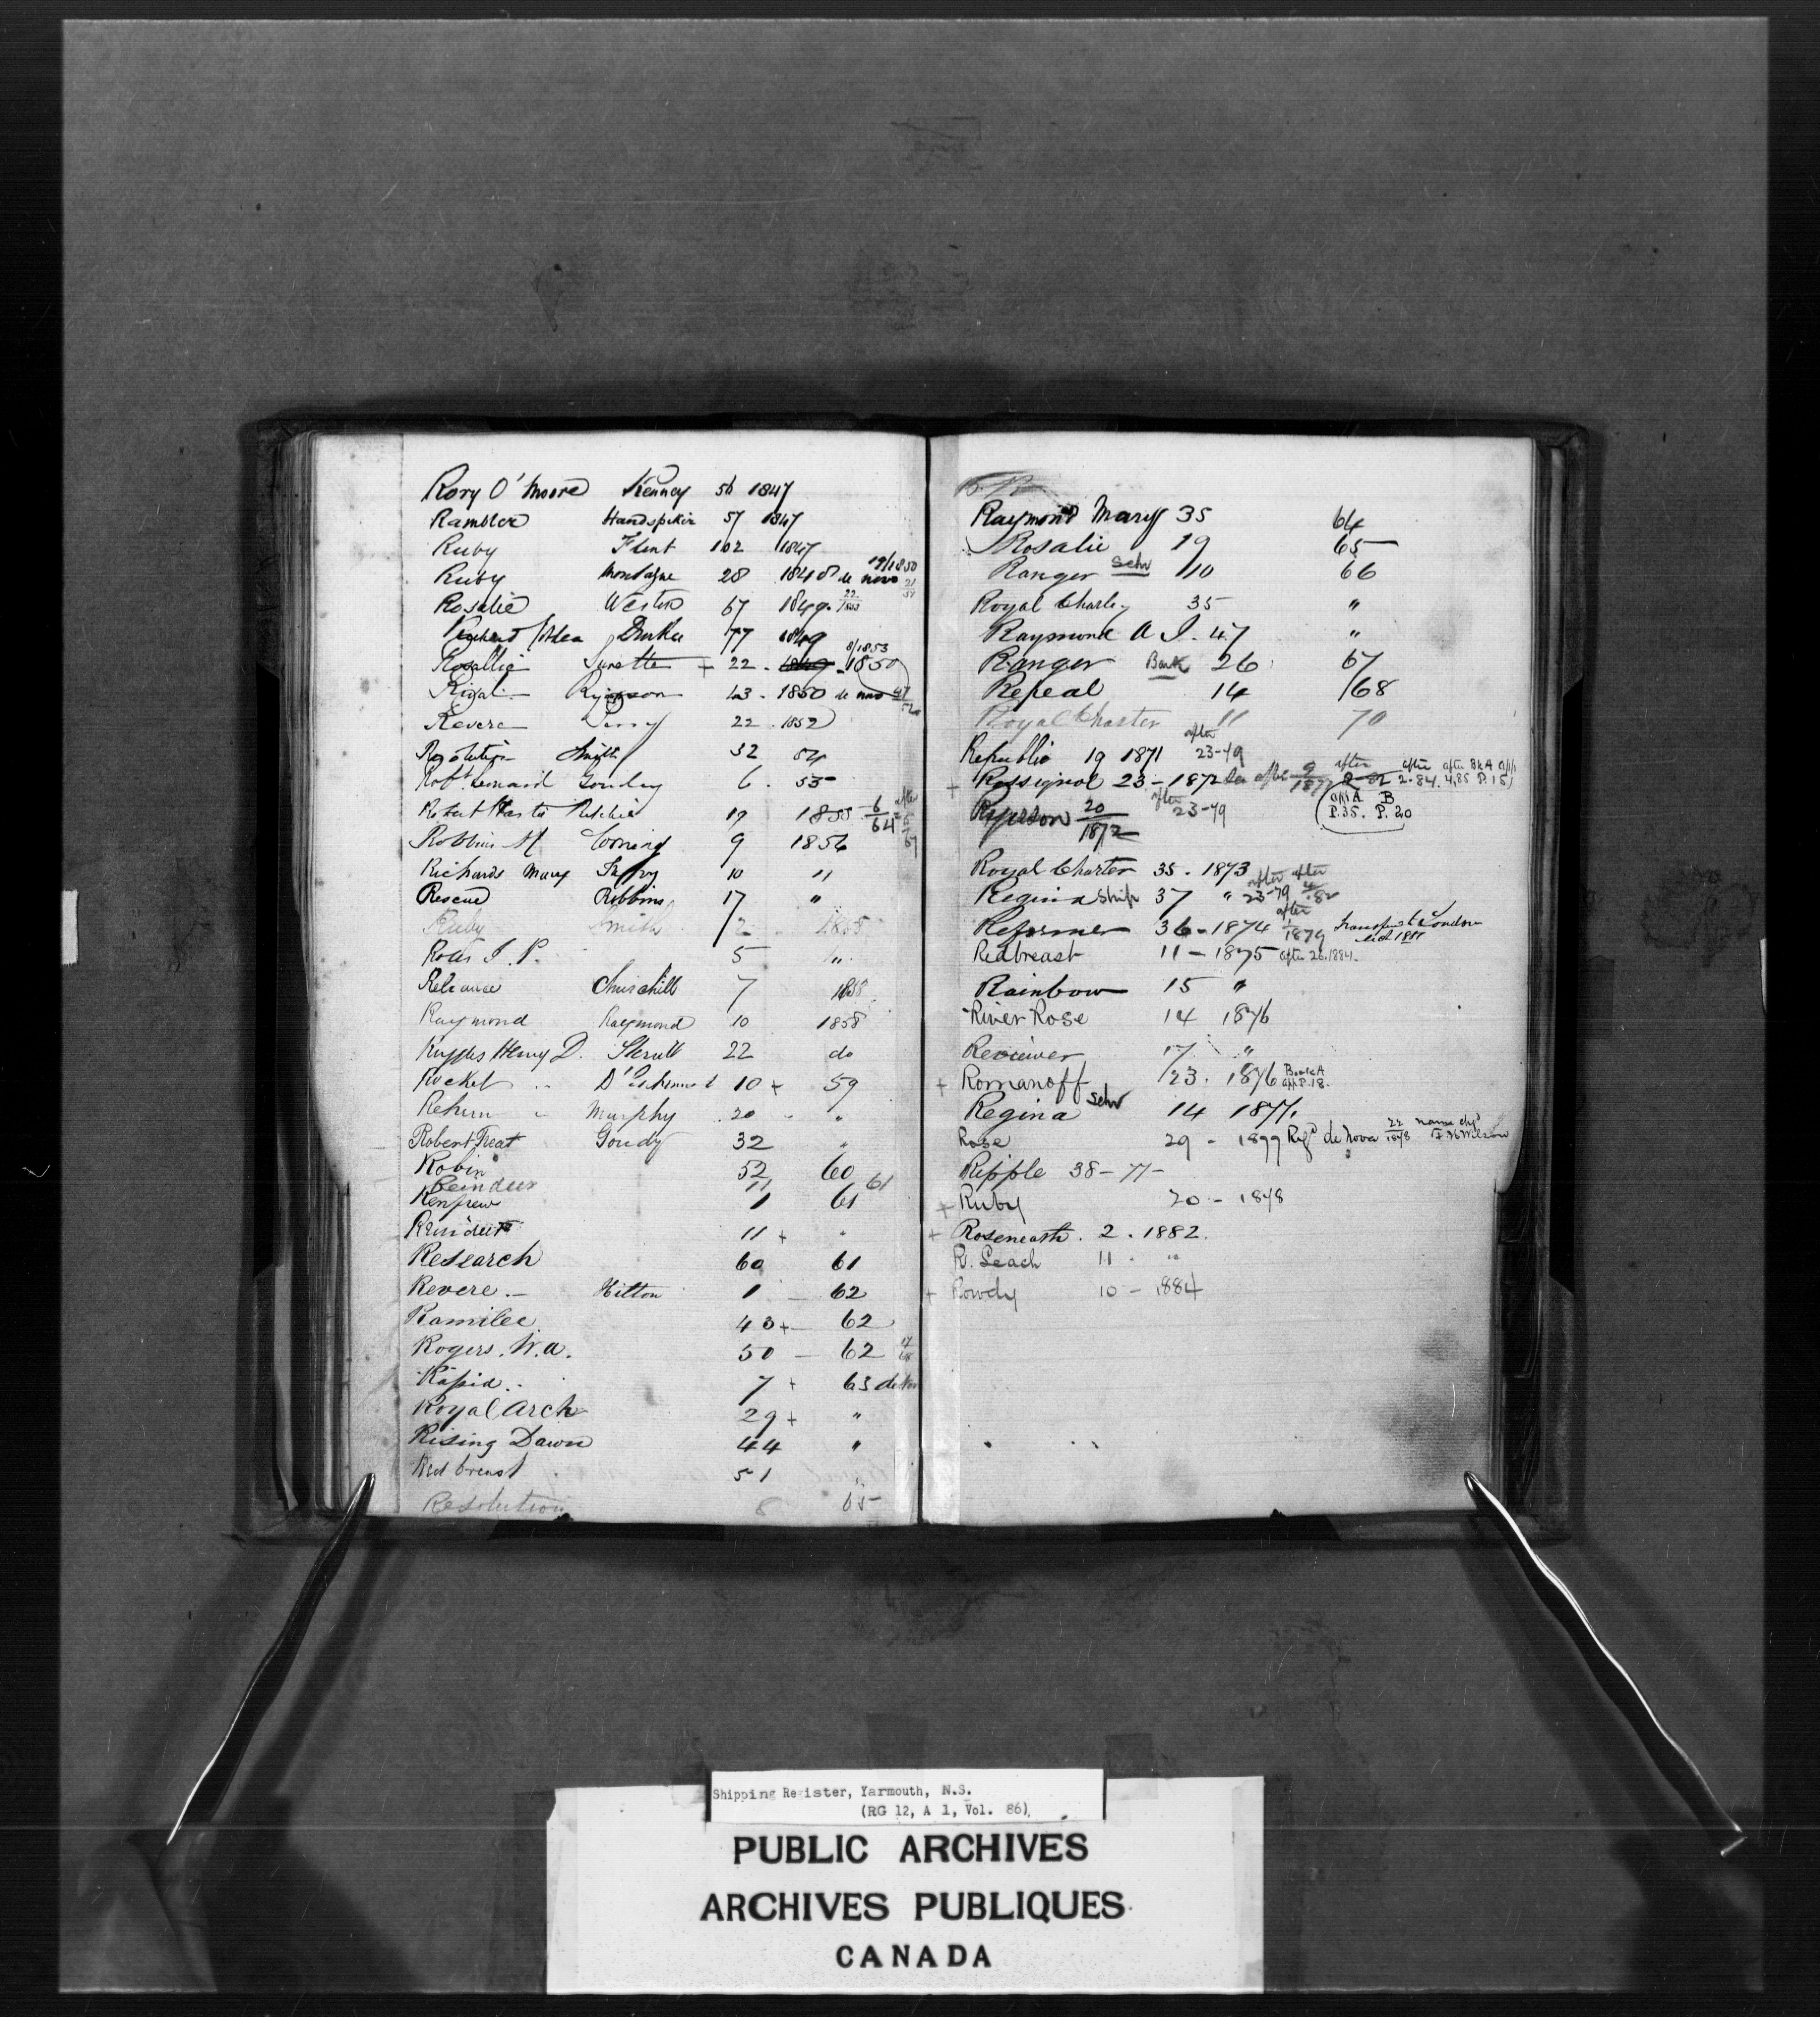 Rory O'Moore Kenney 56 1847
Rambler Handspiker 57 1847
Ruby Flint 102 1847
Ruby Montagne 28 1848 de novo 19/1850 21/51
Rosalie Weston 67 1849. 22/1853
77 1849
Rosallie Surette + 22. 1850 8/1853
Rival Ryerson 43. 1850 de novo
Revere Perry 22. 1852
Resolution Smith 32 54
Robt. Lennard Goudey 6. 55
Robert Ritchie 19 1855 6/64 after
Robbins H Corning 9 1856
Richards Mary 10 "
Rescued Robbins 17 "
Ruby Smith 2 1858
J. P. 5 "
Reliance Churchill 7 1858
Raymond Raymond 10 1858
Ruggles Henry D. 22 do
Rocket 10 + 59
Return " Murphy 20 "
Robert Treat Goudy 32 "
Robin 52 60
Reindeer 11 61
Renfrew 1 61
Reindeer 11 + "
Research 60 61
Revere. Hilton 1 — 62
Ramilee 43 + 62
Rogers. W. A. 50 — 62
Rapid 7 + 63 de Nov
Royal Arch 29 + "
Rising Dawn 44 "
Red breast 51 "
Resolution 8 65
Raymond Mary 35 64
Rosalie 19 65
Ranger Schr 10 66
Royal Charley 35 "
Raymond A J. 47 "
Ranger Bark 26 67
Repeal 14 /68
Royal Charter 11 70
Republic 19 1871 after 23-79
+ Rossignol 23 - 1872 after 9/1877 after 2-82 after 2.84. after Bk A 4,85 P. 15)
Ryerson 20/1872 after 23-79
A B
P. 35. P. 20
Royal Charter 35. 1873
Regina Ship 37 " after 23-79 after 4/82
Reformer 36 - 1874 after 1879 London
Redbreast 11 - 1875 after 26.1884.
Rainbow 15 "
River Rose 14 1876
Reviewer 17 "
+ Romanoff 23. 1876 Book A P. 18.
Regina Schr 14 1877.
Rose 29 - 1877 Regd de Nova 22/1878 name chgd
Ripple 38 - 77 -
+ Ruby 20 - 1878
+ Roseneath. 2. 1882.
R. Leach 11. "
+ Rowdy 10 - 1884
Shipping Register, Yarmouth, N.S.
(RG 12, A 1, Vol. 86)
PUBLIC ARCHIVES
ARCHIVES PUBLIQUES
CANADA